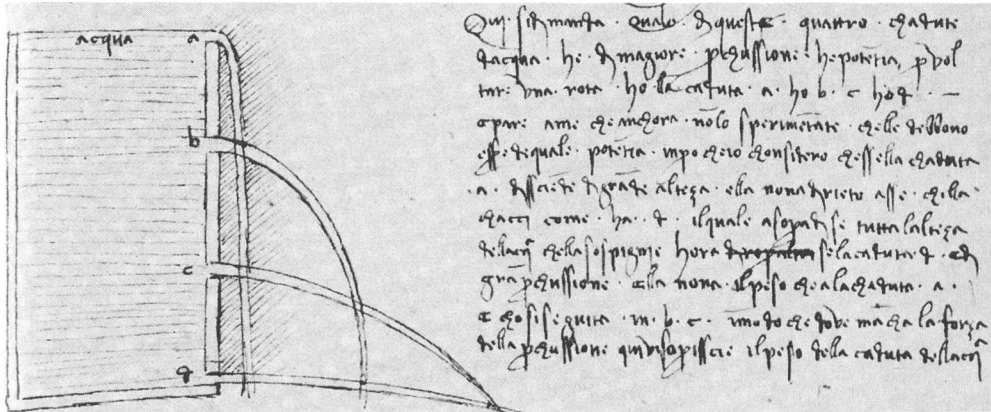 acqua
a
b
c
d
Qui si dimanda · quale di queste · quattro · chadute
dacqua · he · di magiore · perchussione · he potētia, p vol
tare · vna · rota · ho · la caduta · a · ho b · c ho d · —
e pare ame che anchora · nōlo sperimētate · chelle debbono
esse dequale · potētia · inpo cheio chonsidero chessella chaduta
· a · disciēde di grāde alteza · ella nona dirieto asse · chilla
chacci come · ha · d · il quale a sopa di se tutta lalteza
dellacq chella sospignie hora se la caduta d · e di
grā pchussione · ella nona · il peso che a la chaduta · a ·
E chosi seguita · in · b · c · imodo che dove mācha la forza
della pchussione quivi sopisscie il peso della caduta dellacq